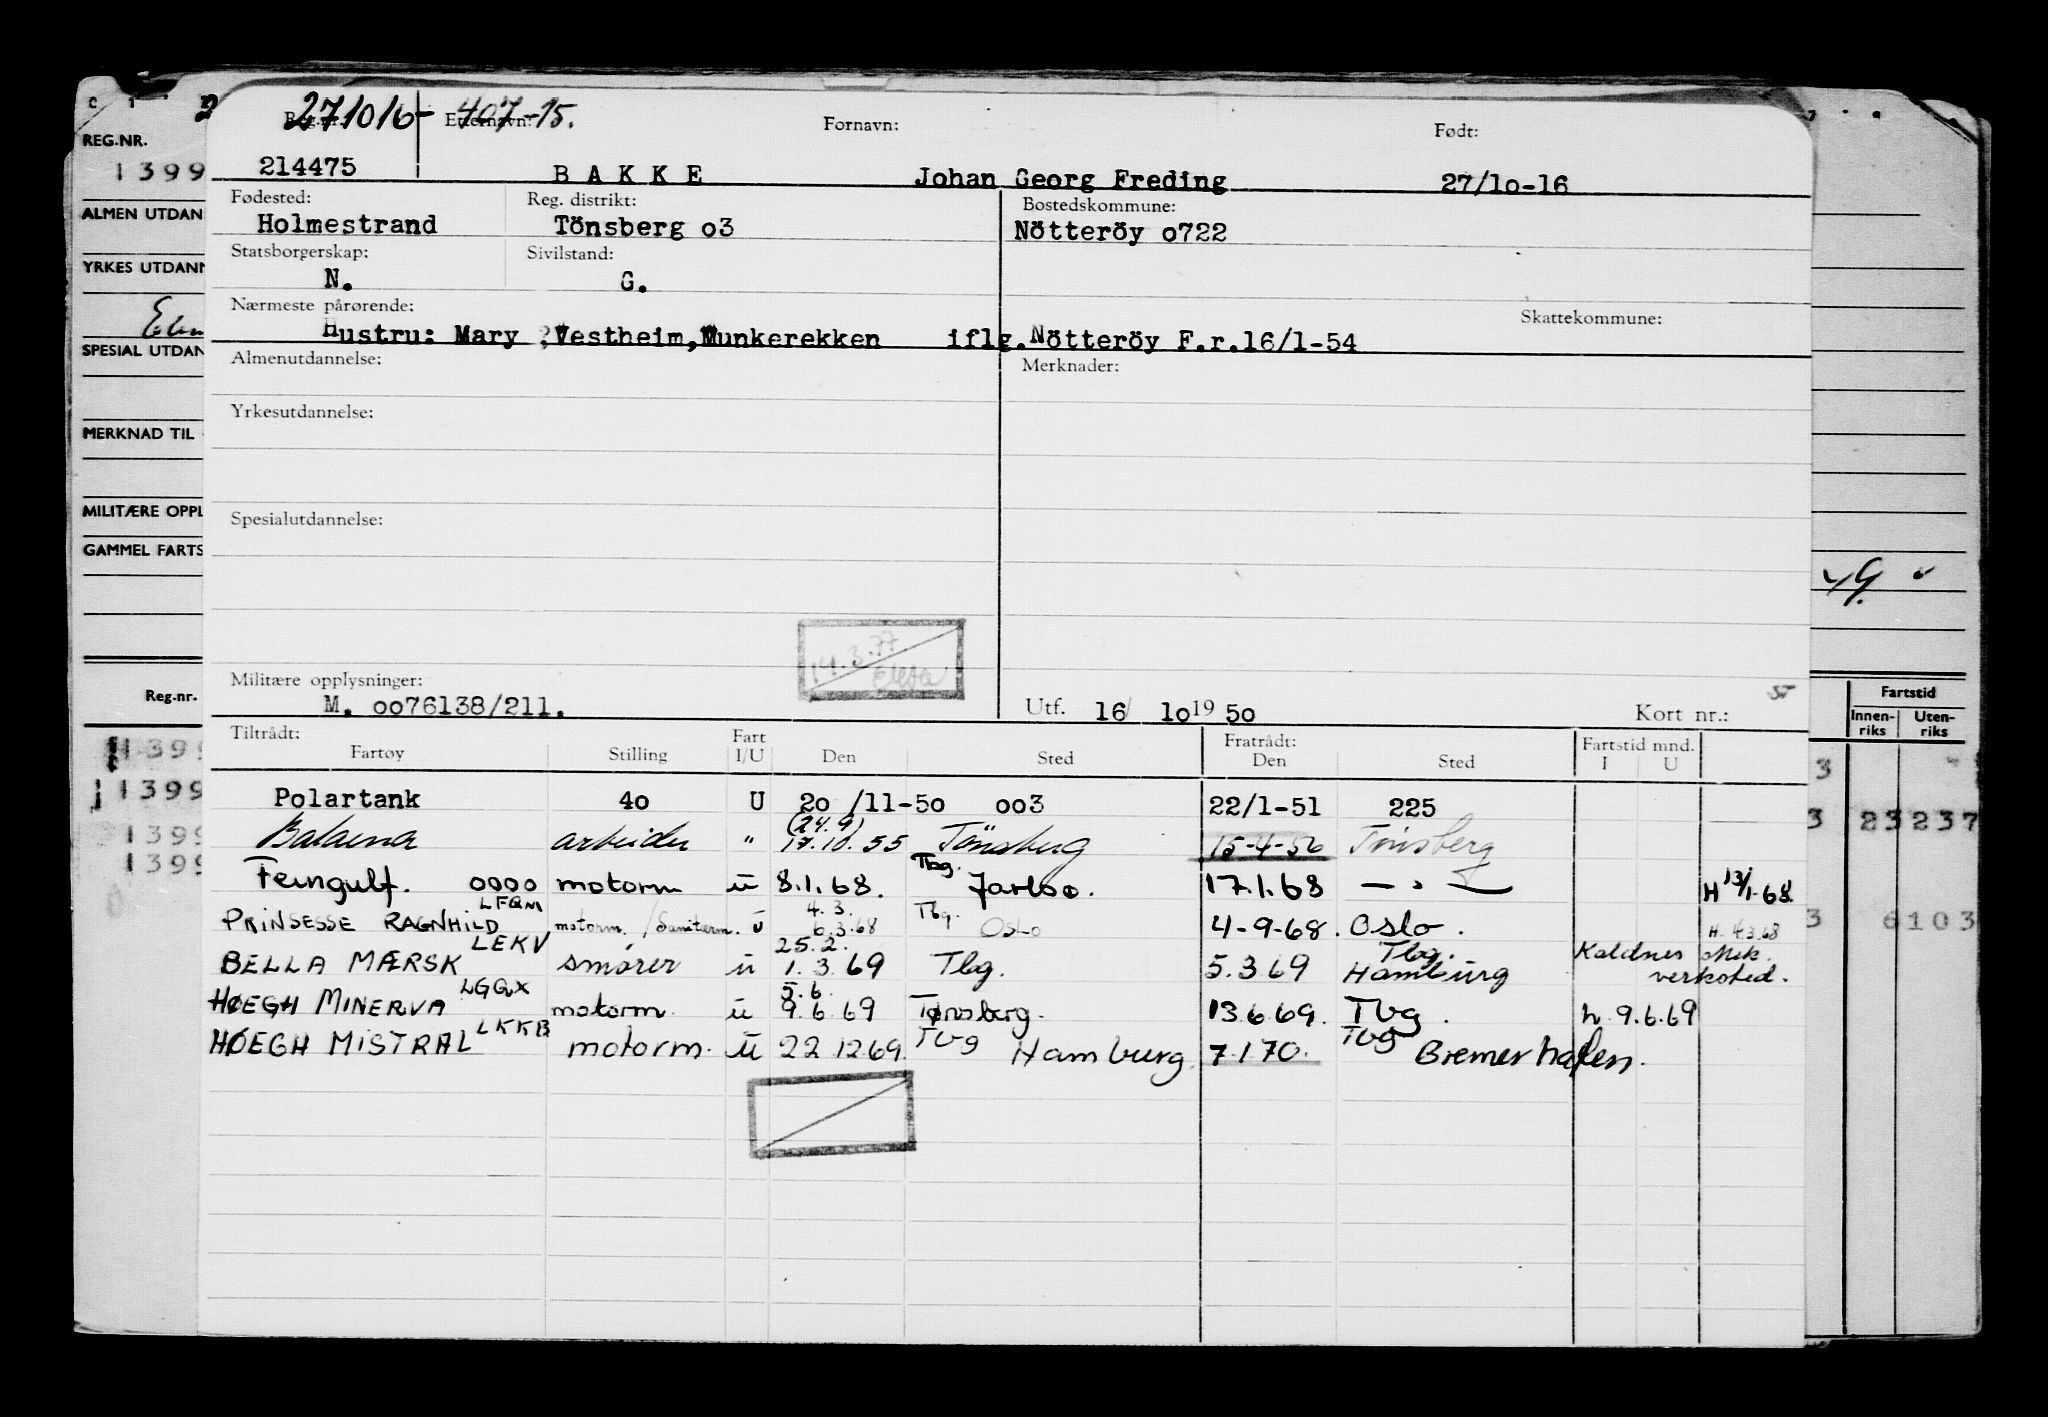 271016- 407-15.
Reg.nr. Etternavn: Fornavn: Født:
214475 BAKKE Johan Georg Freding 27/1o-16
Fødested: Reg. distrikt: Bostedskommune:
Holmestrand Tönsberg o3 Nötteröy o722
Statsborgerskap: Sivilstand:
N. G.
Nærmeste pårørende: Skattekommune:
Hustru: Mary ?Vestheim,Munkerekken iflg.Nötteröy F.r.16/1-54
Almenutdannelse: Merknader:
Yrkesutdannelse:
Spesialutdannelse:
14.3.77
Militære opplysninger:
M. oo76138/211.
Utf. 16/ 1o 19 5o Kort nr.:
Tiltrådt: Fart Fratrådt: Fartstid mnd.
Fartøy Stilling I/U Den Sted Den Sted I U
Polartank 4o U 2o /11-5o oo3 22/1-51 225
(24.9)
Balaena arbeider " 17.10.55 Tönsberg 15-4-56 Tönsberg
Tbg.
Ferngulf. 0000 motorm u 8.1.68. Jarlsø. 17.1.68 — " — H 13/1-68.
LFQM 4.3. Tbg.
PRINSESSE RAGNHILD motorm. / Sanitærm. u 6.3.68 Oslo 4-9-68. Oslo. H. 4.3.68
LEKV 25.2. Tbg. Kaldnes Mek.
BELLA MÆRSK smører u 1.3.69 Tbg. 5.3.69 Hamburg verksted.
LGQX 5.6.
HØEGH MINERVA motorm. u 9.6.69 Tønsberg. 13.6.69. Tbg. h. 9.6.69
LKKB Tbg Tbg
HØEGH MISTRAL motorm. u 22.12.69. Hamburg. 7.1.70. Bremerhafen.
REG.NR.
1399
ALMEN UTDAN
YRKES UTDANN
SPESIAL UTDAN
MERKNAD TIL
MILITÆRE OPPL
GAMMEL FARTS
Reg.-nr.
1399
1399
1399
1399
Fartstid
Innen-riks Uten-riks
3
3 23237
3 6103